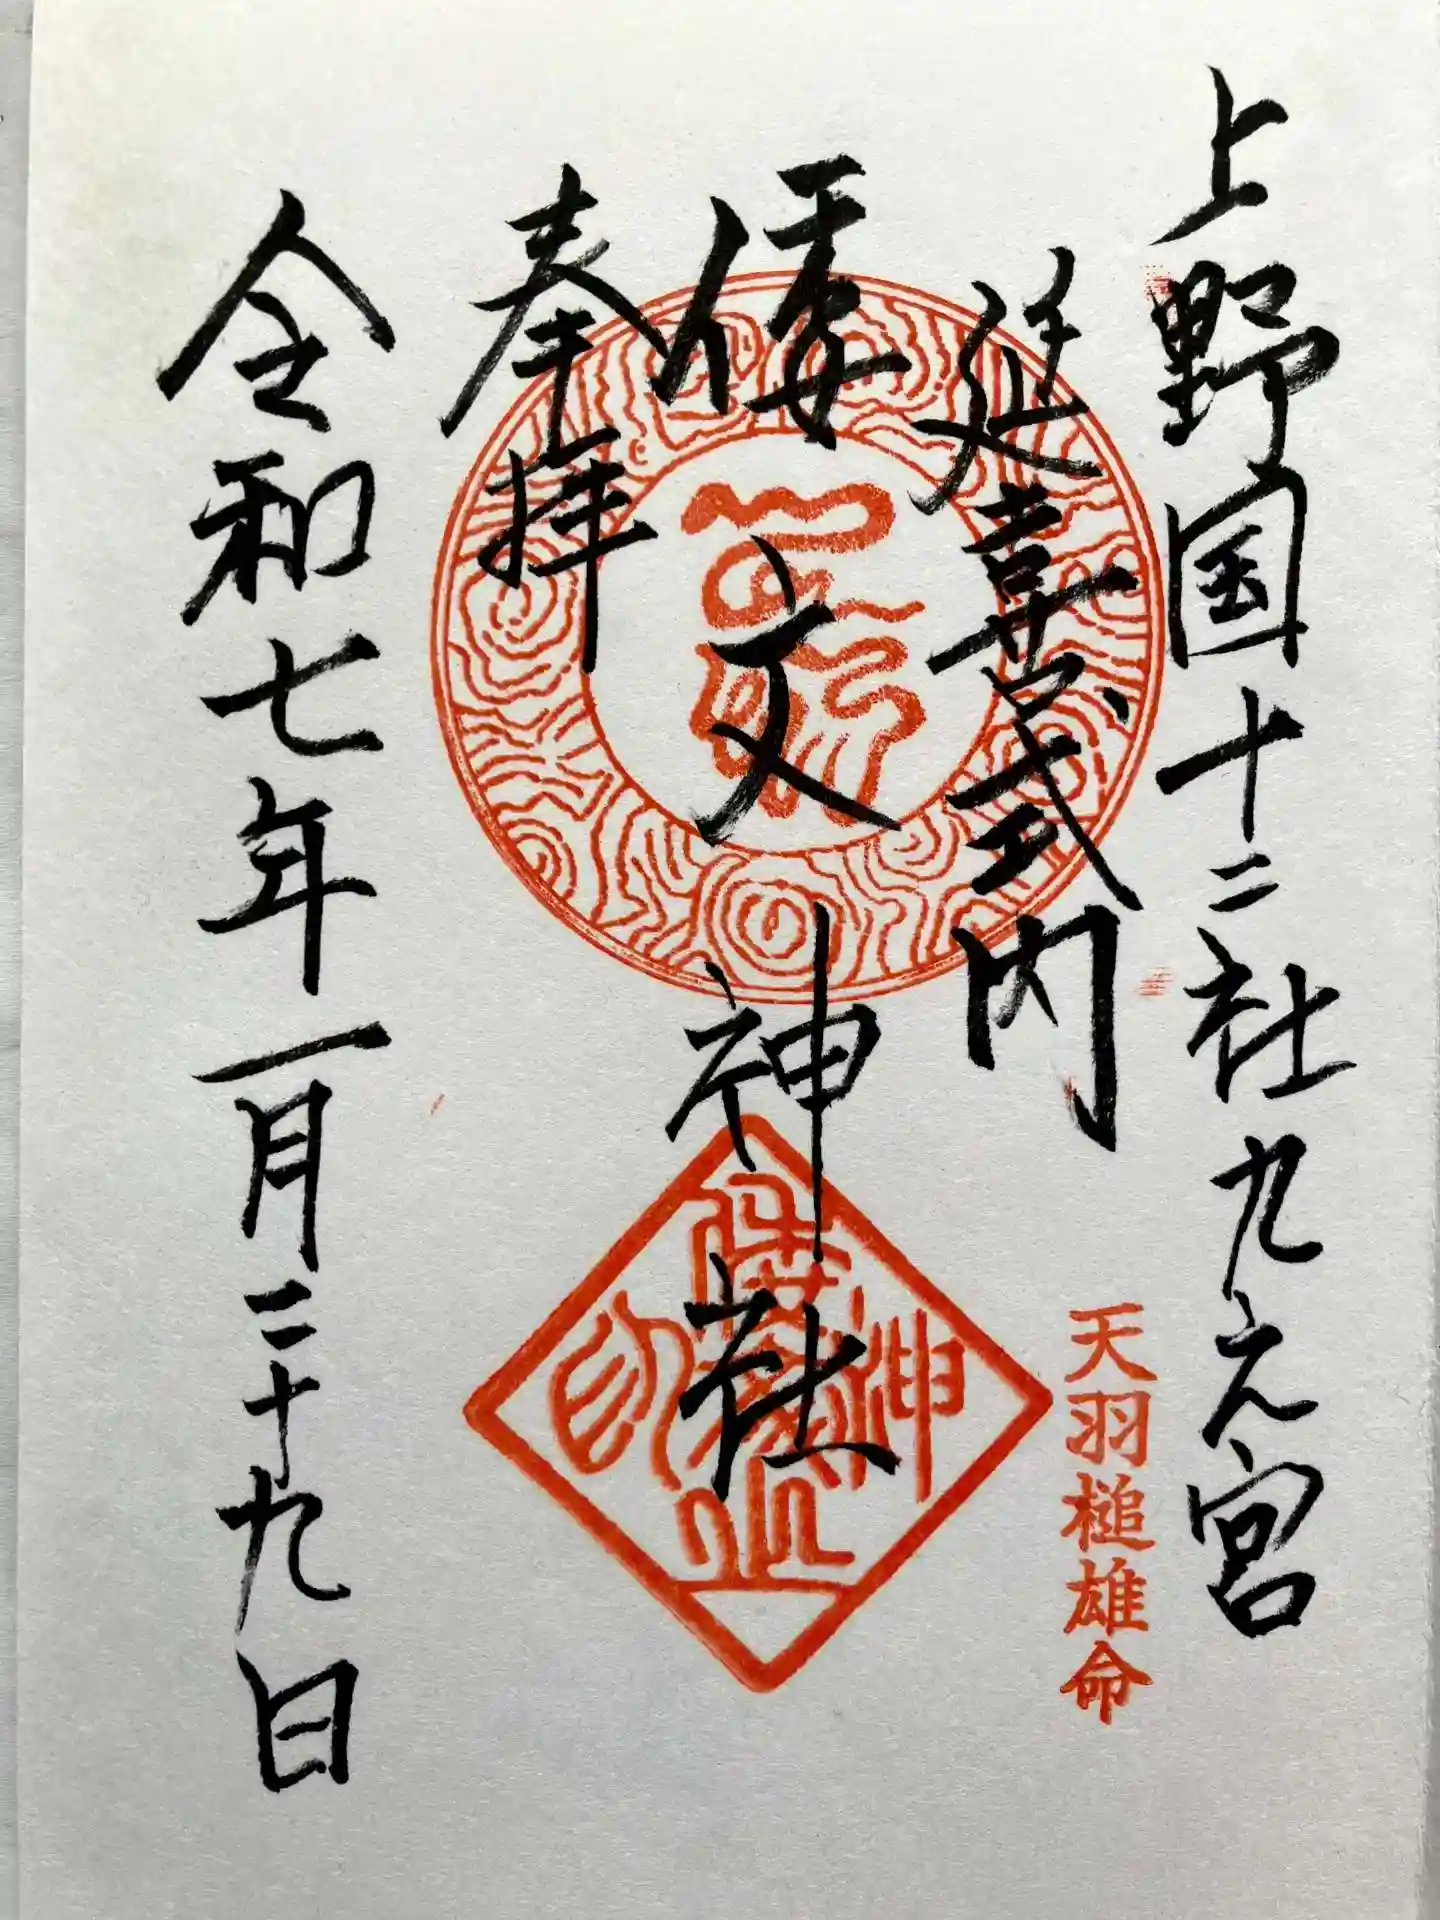 上野国十二社九之宮
天羽槌雄命
延喜式内
倭文神社
奉拝
令和七年一月二十九日